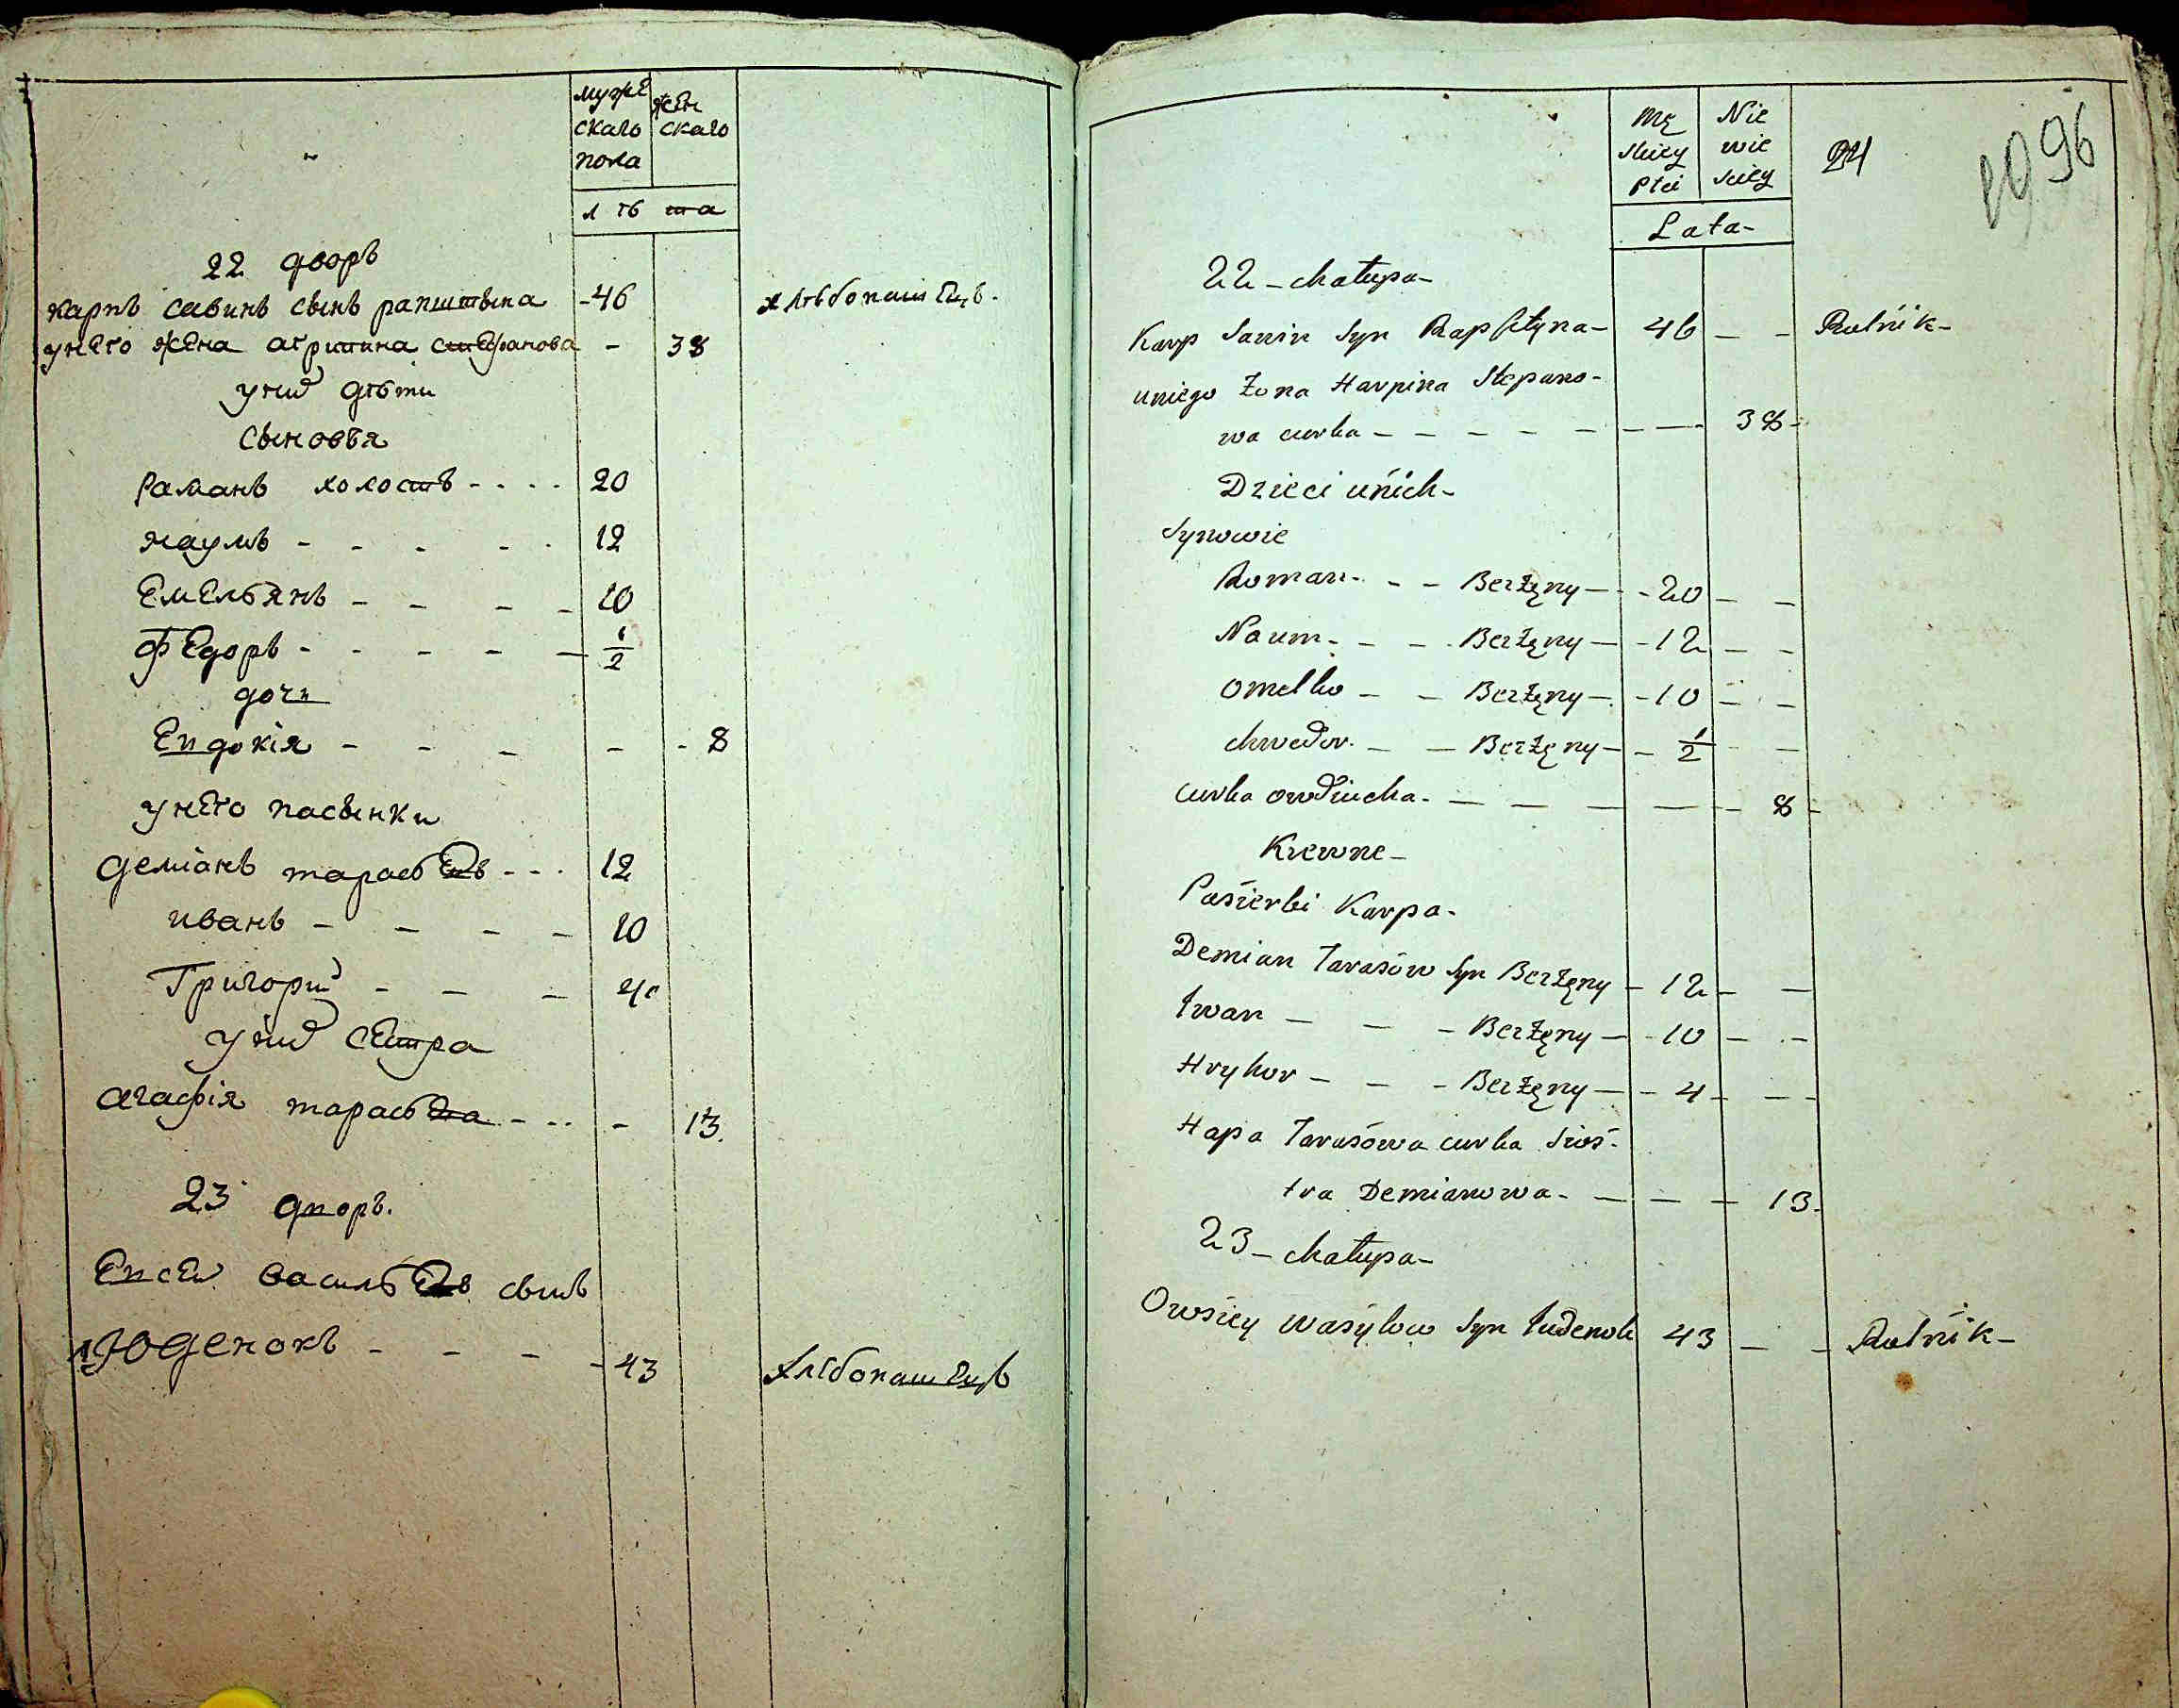 муже
скаго
пола
жен
скаго
лѣ та
22 дворъ
карпъ савинъ сынъ рапштына -46 хлѣбопашецъ.
унего жена агрипина стефанова - 38
унихъ дѣти
сыновья
Раманъ холостъ - - - - 20
наумъ - - - - - 12
Емельянъ - - - - 10
Федоръ - - - - - 1/2
дочи
Евдокія - - - - - 8
унего пасынки
демианъ тарасьевъ - - - 12
иванъ - - - - 10
Григорий - - - 4
унихъ сестра
агафія тарасьева - - - - 13.
23 дворъ.
Евсей васильевъ сынъ
юденокъ - - - - 43 хлѣбопашецъ
Mę
skiey
Płci
Nie
wie
sciey
24
1096
Lata-
22 - chałupa-
Karp Sawin Syn Rapsztyna- 46 - - Rolnik-
uniego Żona Harpina Stepano-
wa curka - - - - - - - 38-
Dzieci unich-
Synowie
Roman - - - Beżżęny - - 20 - -
Naum - - - Beżżęny - - 12 - -
Omelko - - Beżżęny - - 10 - -
Chwedor. - - Beżżęny - - 1/2 - -
curka owdiucha. - - - - - 8 -
Krewne-
Pasierbi Karpa-
Demian Tarasów Syn Beżżęny - 12 - -
Iwan - - - Beżżęny - - 10 - -
Hryhor - - - Beżżęny - - 4 - - -
Hapa Tarasowa curka Sios-
tra Demianowa - - - - 13.
23 - chałupa-
Owsiey Wasylow Syn Iudenok 43 - - Rolnik-